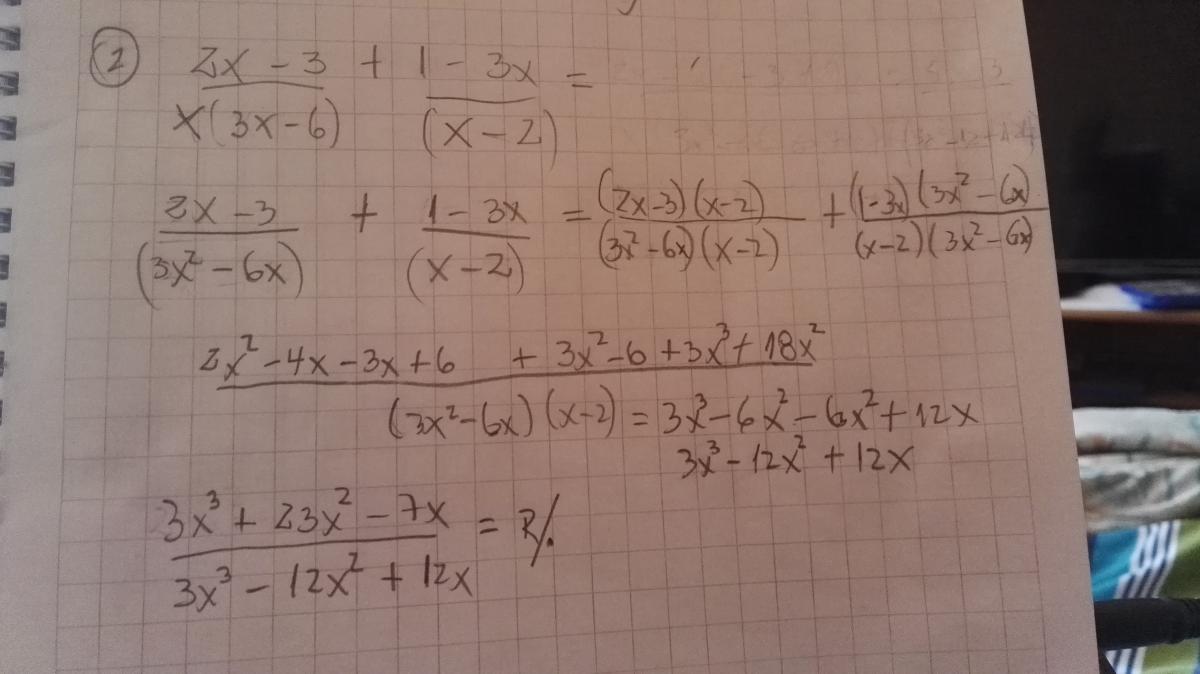 ② 2x - 3 / x(3x - 6) + 1 - 3x / (x - 2) =
2x - 3 / (3x² - 6x) + 1 - 3x / (x - 2) = (2x - 3)(x - 2) / (3x² - 6x)(x - 2) + (1 - 3x)(3x² - 6x) / (x - 2)(3x² - 6x)
2x² - 4x - 3x + 6 + 3x² - 6 + 3x³ + 18x²
(3x² - 6x)(x - 2) = 3x³ - 6x² - 6x² + 12x
3x³ - 12x² + 12x
3x³ + 23x² - 7x / 3x³ - 12x² + 12x = R/.